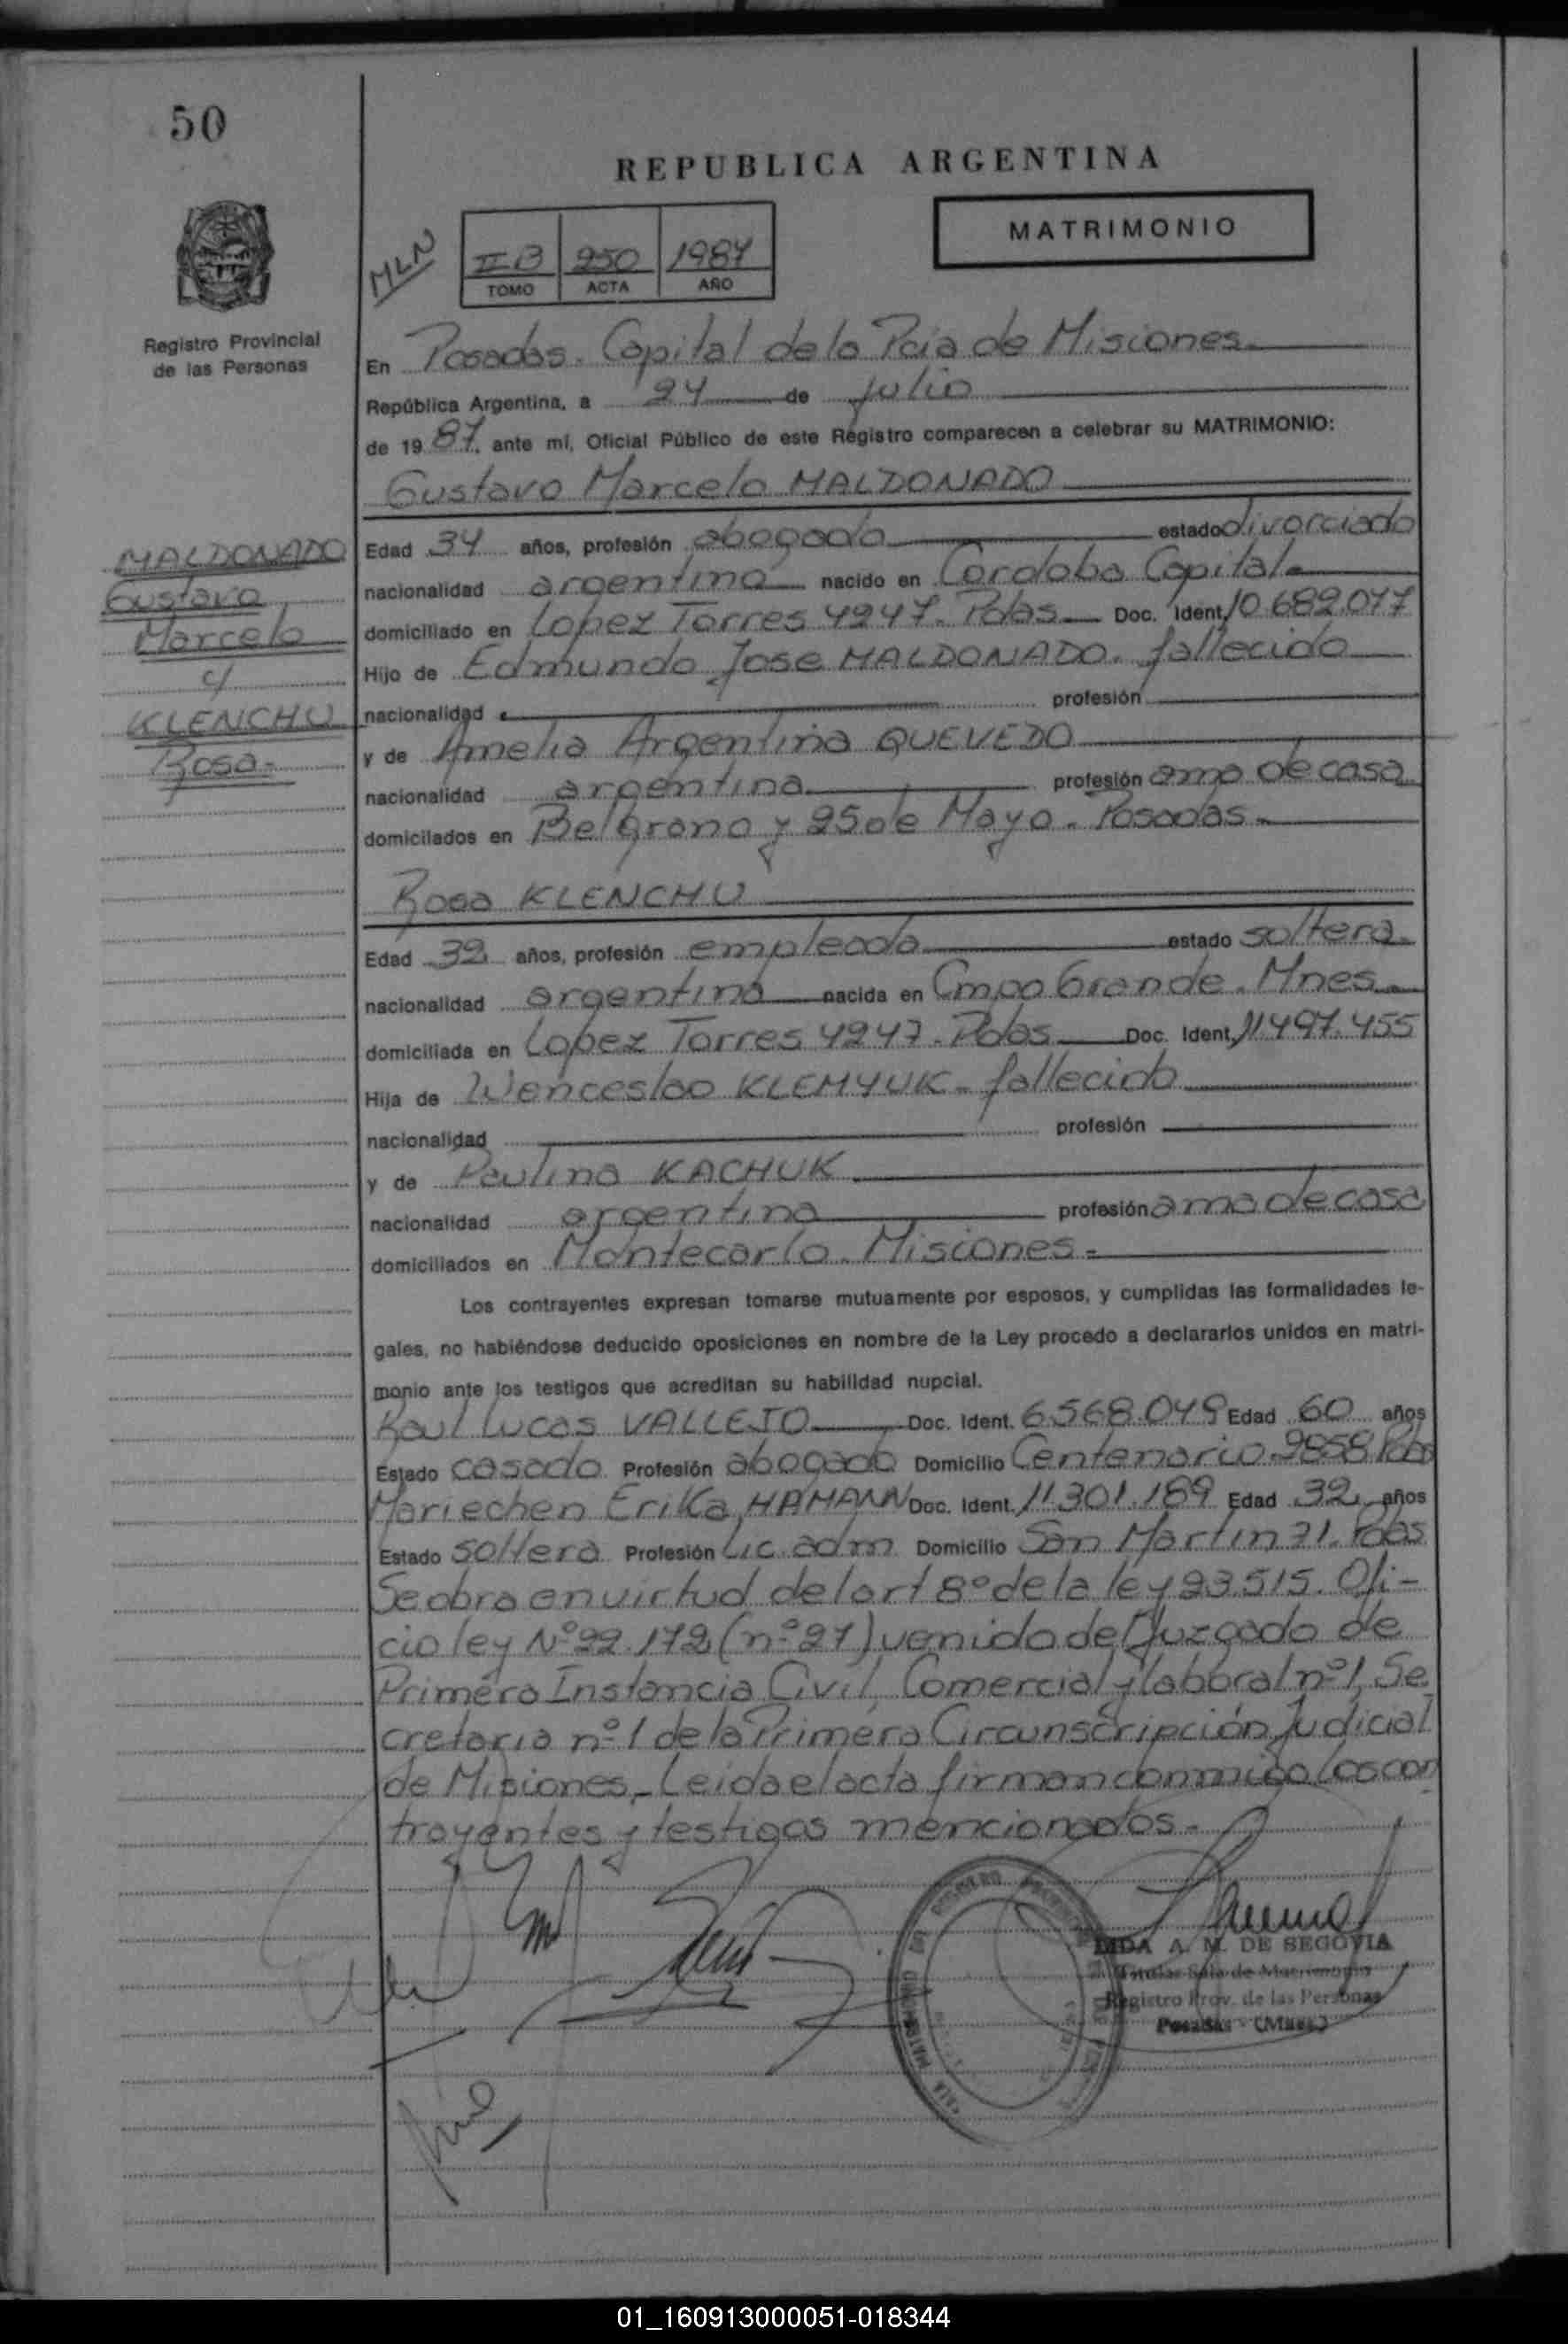 50
REPUBLICA ARGENTINA
MATRIMONIO
MLN
II B 250 1987
TOMO ACTA AÑO
Registro Provincial
de las Personas
En Posadas. Capital de la Pcia de Misiones.
República Argentina, a 24 de julio
de 19 87, ante mí, Oficial Público de este Registro comparecen a celebrar su MATRIMONIO:
Gustavo Marcelo MALDONADO
MALDONADO
Gustavo
Marcelo
c/
KLENCHU
Rosa-
Edad 34 años, profesión abogado estado divorciado
nacionalidad argentino nacido en Cordoba Capital.
domiciliado en Lopez Torres 4247. Pdas Doc. Ident. 10.682.077
Hijo de Edmundo Jose MALDONADO. fallecido
nacionalidad profesión
y de Amelia Argentina QUEVEDO
nacionalidad argentina profesión ama de casa
domicilados en Belgrano y 25 de Mayo. Posadas.
Rosa KLENCHU
Edad 32 años, profesión empleada estado soltera.
nacionalidad argentina nacida en Cmpo Grande. Mnes.
domiciliada en Lopez Torres 4247. Pdas Doc. Ident. 11.497.455
Hija de Wenceslao KLEMYUK - fallecido
nacionalidad profesión
y de Paulina KACHUK
nacionalidad argentina profesión ama de casa
domiciliados en Montecarlo. Misiones.
Los contrayentes expresan tomarse mutuamente por esposos, y cumplidas las formalidades le-
gales, no habiéndose deducido oposiciones en nombre de la Ley procedo a declararlos unidos en matri-
monio ante los testigos que acreditan su habilidad nupcial.
Raul Lucas VALLEJO Doc. Ident. 6.568.049 Edad 60 años
Estado casado Profesión abogado Domicilio Centenario 2858 Pdas
Mariechen Erika HAMANN Doc. Ident. 11.301.189 Edad 32 años
Estado soltera Profesión Lic. adm Domicilio San Martin 71. Pdas
Se obra en virtud del art 8º de la ley 23.515. Ofi-
cio ley Nº 22.172 (nº 27) venido del Juzgado de
Primera Instancia Civil, Comercial y laboral nº 1, Se
cretaria nº 1 de la Primera Circunscripción Judicial
de Misiones. Leida el acta firman conmigo los con
trayentes y testigos mencionados.
A. M. DE SEGOVIA
Titular Sala de Matrimonio
Registro Prov. de las Personas
Posadas - (Mnes.)
01_160913000051-018344